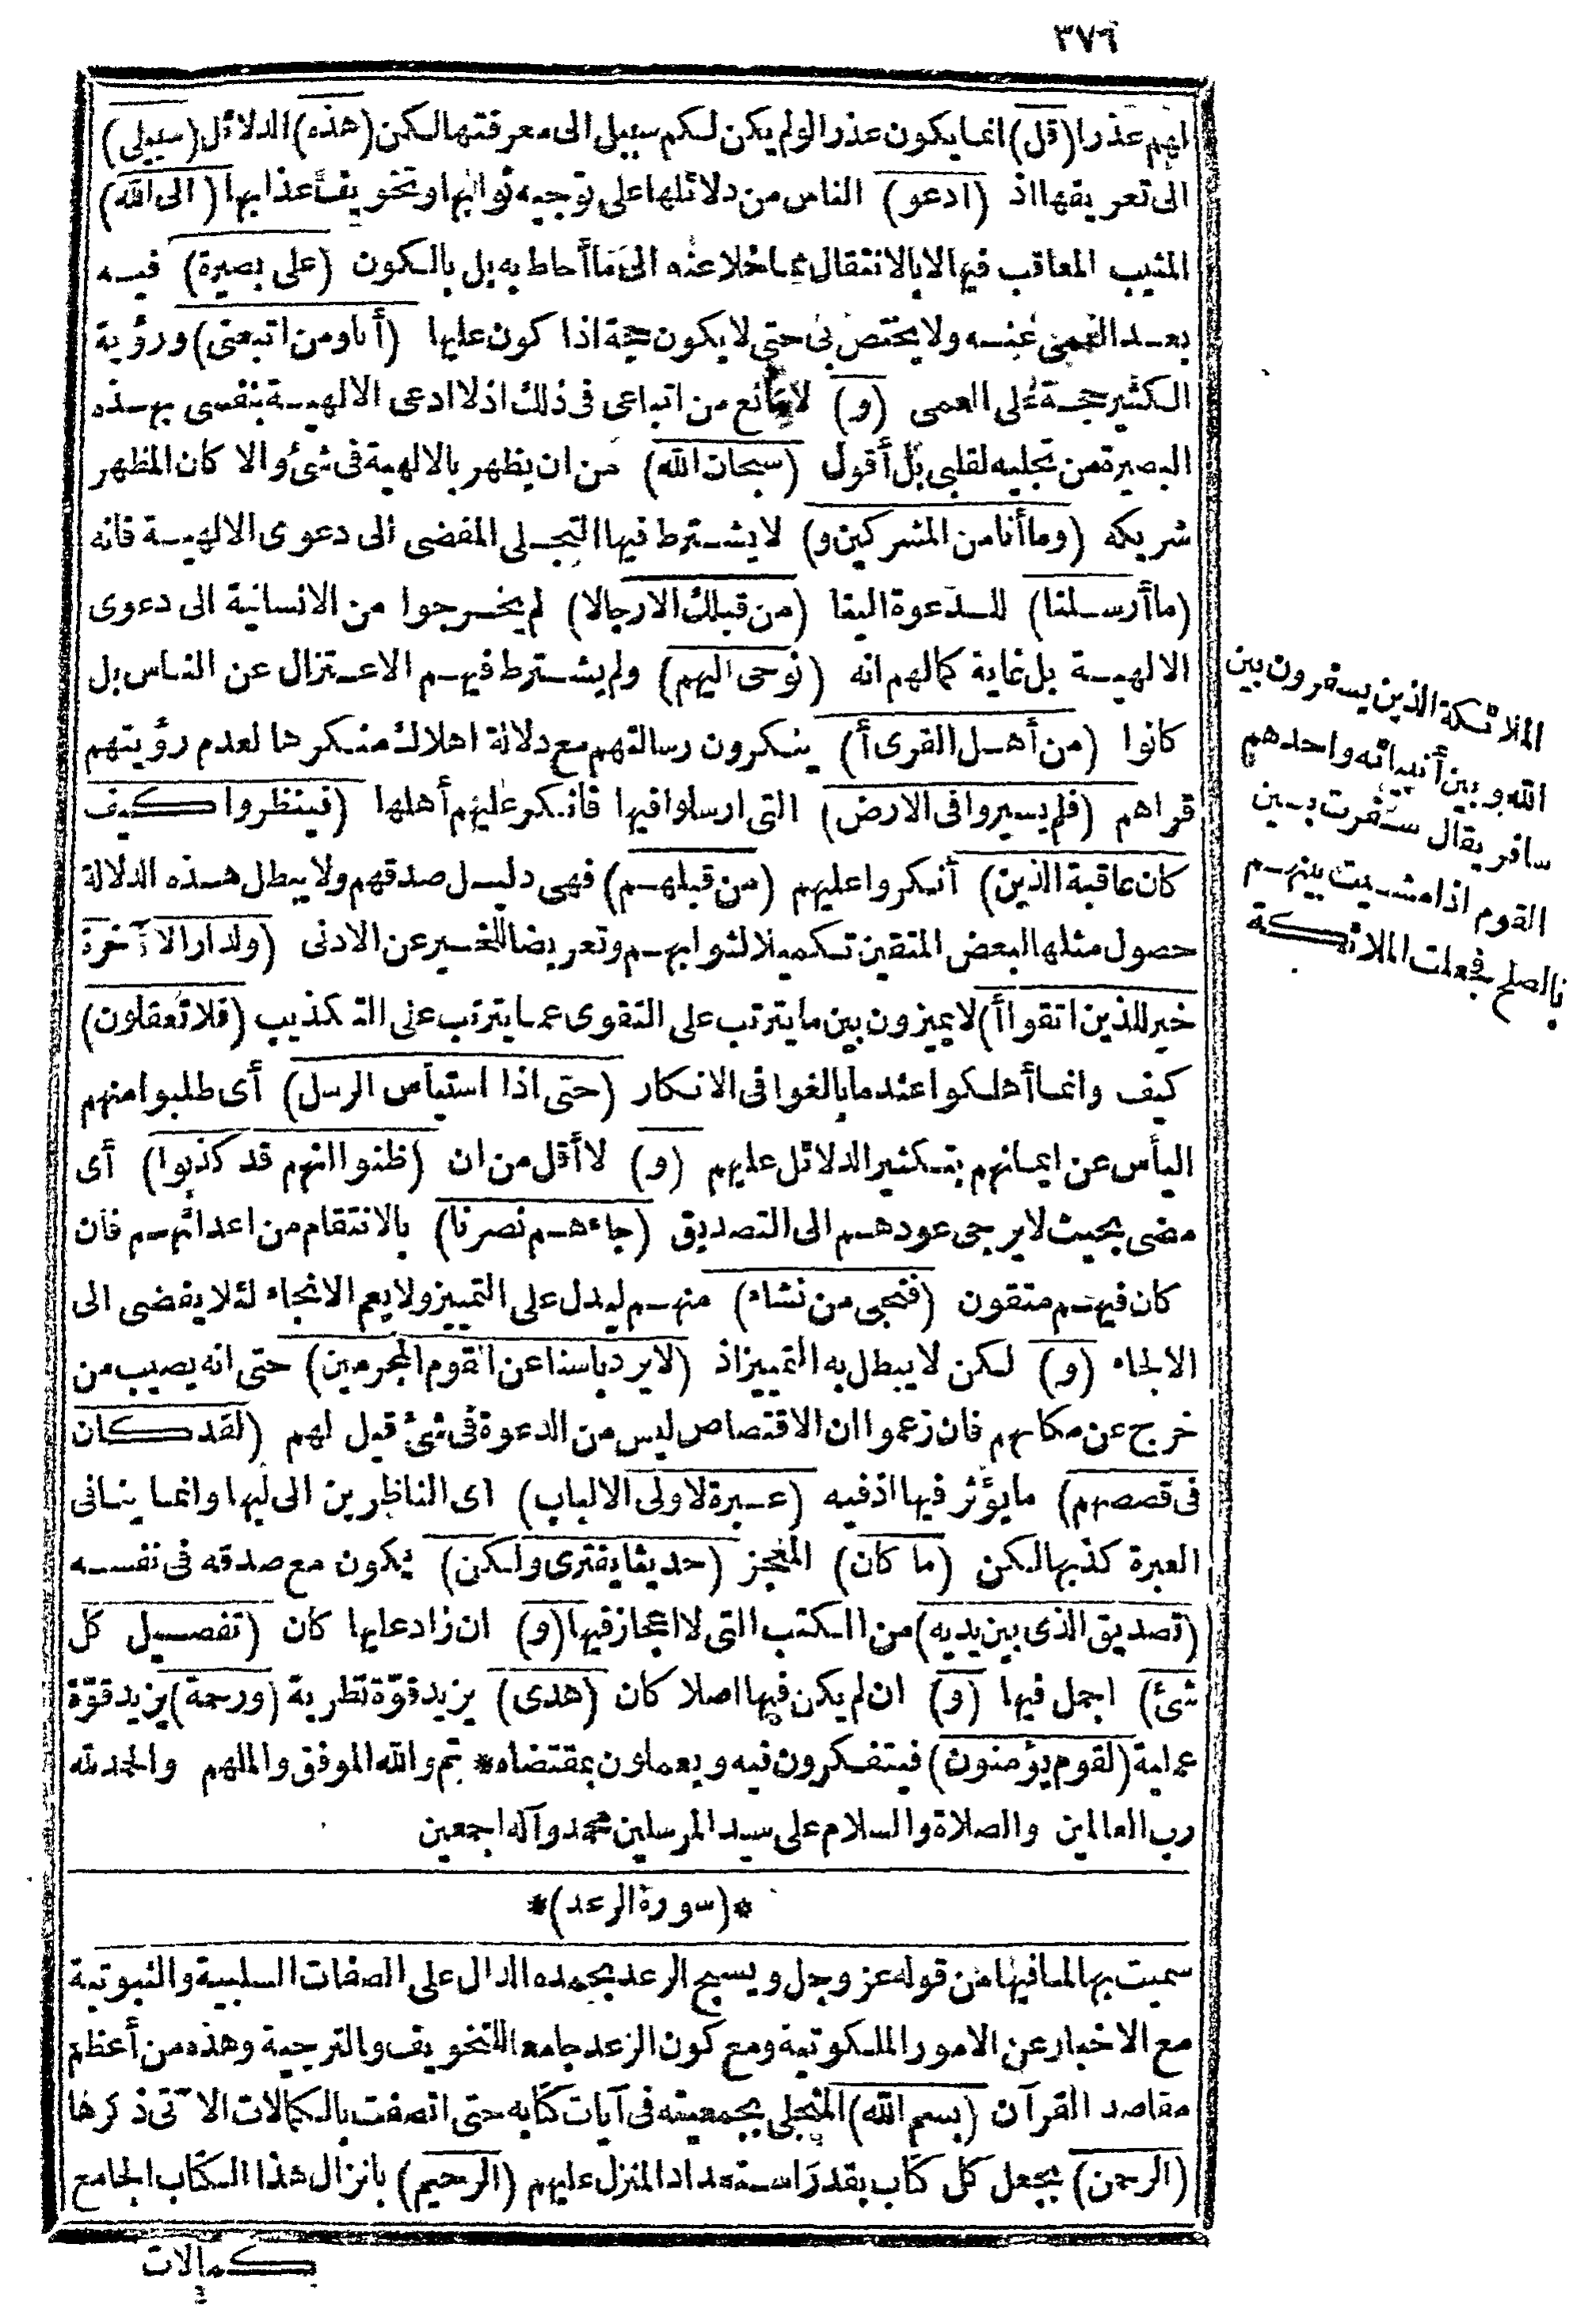 ٣٧٦
لهم عذرا (قل) انما يكون عذرا لو لم يكن لكم سبيل الى معرفتها لكن (هذه) الدلائل (سبيلى)
الى تعريفها اذ (ادعو) الناس من دلائلها على توجيه ثوابها وتخويف عذابها (الى الله)
المثيب المعاقب فيها لا بالانتقال عما خلا عنه الى ما أحاط به بل بالكون (على بصيرة) فيه
بعد العمى عنه ولا يختص بى حتى لا يكون حجة اذا كون عليها (أنا ومن اتبعنى) ورؤية
الكثير حجة على العمى (و) لا مانع من اتباعى فى ذلك اذ لا ادعى الالهية بنفسى بهذه
البصيرة من تجليه لقلبى بل أقول (سبحان الله) من ان يظهر بالالهية فى شئ والا كان المظهر
شريكه (وما أنا من المشركين و) لا يشترط فيها التجلى المفضى الى دعوى الالهية فانه
(ما أرسلنا) للدعوة الينا (من قبلك الا رجالا) لم يخرجوا من الانسانية الى دعوى
الالهية بل غاية كمالهم انه (نوحى اليهم) ولم يشترط فيهم الاعتزال عن الناس بل
كانوا (من أهل القرى أ) ينكرون رسالتهم مع دلالة اهلاك منكرها لعدم رؤيتهم
قراهم (فلم يسيروا فى الارض) التى ارسلوا فيها فانكر عليهم أهلها (فينظروا كيف
كان عاقبة الذين) أنكروا عليهم (من قبلهم) فهى دليل صدقهم ولا يبطل هذه الدلالة
حصول مثلها لبعض المتقين تكميلا لثوابهم وتعريضا للخير عن الادنى (ولدار الآخرة
خير للذين اتقوا أ) لا يميزون بين ما يترتب على التقوى عما يترتب على التكذيب (فلا تعقلون)
كيف وانما أهلكوا عند ما بالغوا فى الانكار (حتى اذا استيأس الرسل) أى طلبوا منهم
اليأس عن ايمانهم بتكثير الدلائل عليهم (و) لا أقل من ان (ظنوا انهم قد كذبوا) أى
مضى بحيث لا يرجى عودهم الى التصديق (جاءهم نصرنا) بالانتقام من اعدائهم فان
كان فيهم متقون (فنجى من نشاء) منهم ليدل على التمييز ولا يعم الانجاء لئلا يفضى الى
الالجاء (و) لكن لا يبطل به التمييز اذ (لا يرد بأسنا عن القوم المجرمين) حتى انه يصيب من
خرج عن مكانهم فان زعموا ان الاقتصاص ليس من الدعوة فى شئ قيل لهم (لقد كان
فى قصصهم) ما يؤثر فيها اذ فيه (عبرة لاولى الالباب) اى الناظرين الى لبها وانما ينافى
العبرة كذبها لكن (ما كان) المعجز (حديثا يفترى ولكن) يكون مع صدقه فى نفسه
(تصديق الذى بين يديه) من الكتب التى لا اعجاز فيها (و) ان زاد عليها كان (تفصيل كل
شئ) اجمل فيها (و) ان لم يكن فيها اصلا كان (هدى) يزيد قوة نظرية (ورحمة) يزيد قوة
عملية (لقوم يؤمنون) فيتفكرون فيه ويعملون بمقتضاه * تم والله الموفق والملهم والحمد لله
رب العالمين والصلاة والسلام على سيد المرسلين محمد وآله اجمعين
*(سورة الرعد)*
سميت بها لما فيها من قوله عز وجل ويسبح الرعد بحمده الدال على الصفات السلبية والثبوتية
مع الاخبار عن الامور الملكوتية ومع كون الرعد جامعا للتخويف والترجية وهذه من أعظم
مقاصد القرآن (بسم الله) المتجلى بجمعيته فى آيات كتابه حتى اتصفت بالكمالات الآتى ذكرها
(الرحمن) بجعل كل كتاب بقدر استعداد المنزل عليهم (الرحيم) بانزال هذا الكتاب الجامع
بكمالات
الملائكة الذين يسفرون بين
الله وبين أنبيائه واحدهم
سافر يقال سفرت بين
القوم اذا مشيت بينهم
بالصلح فجعلت الملائكة